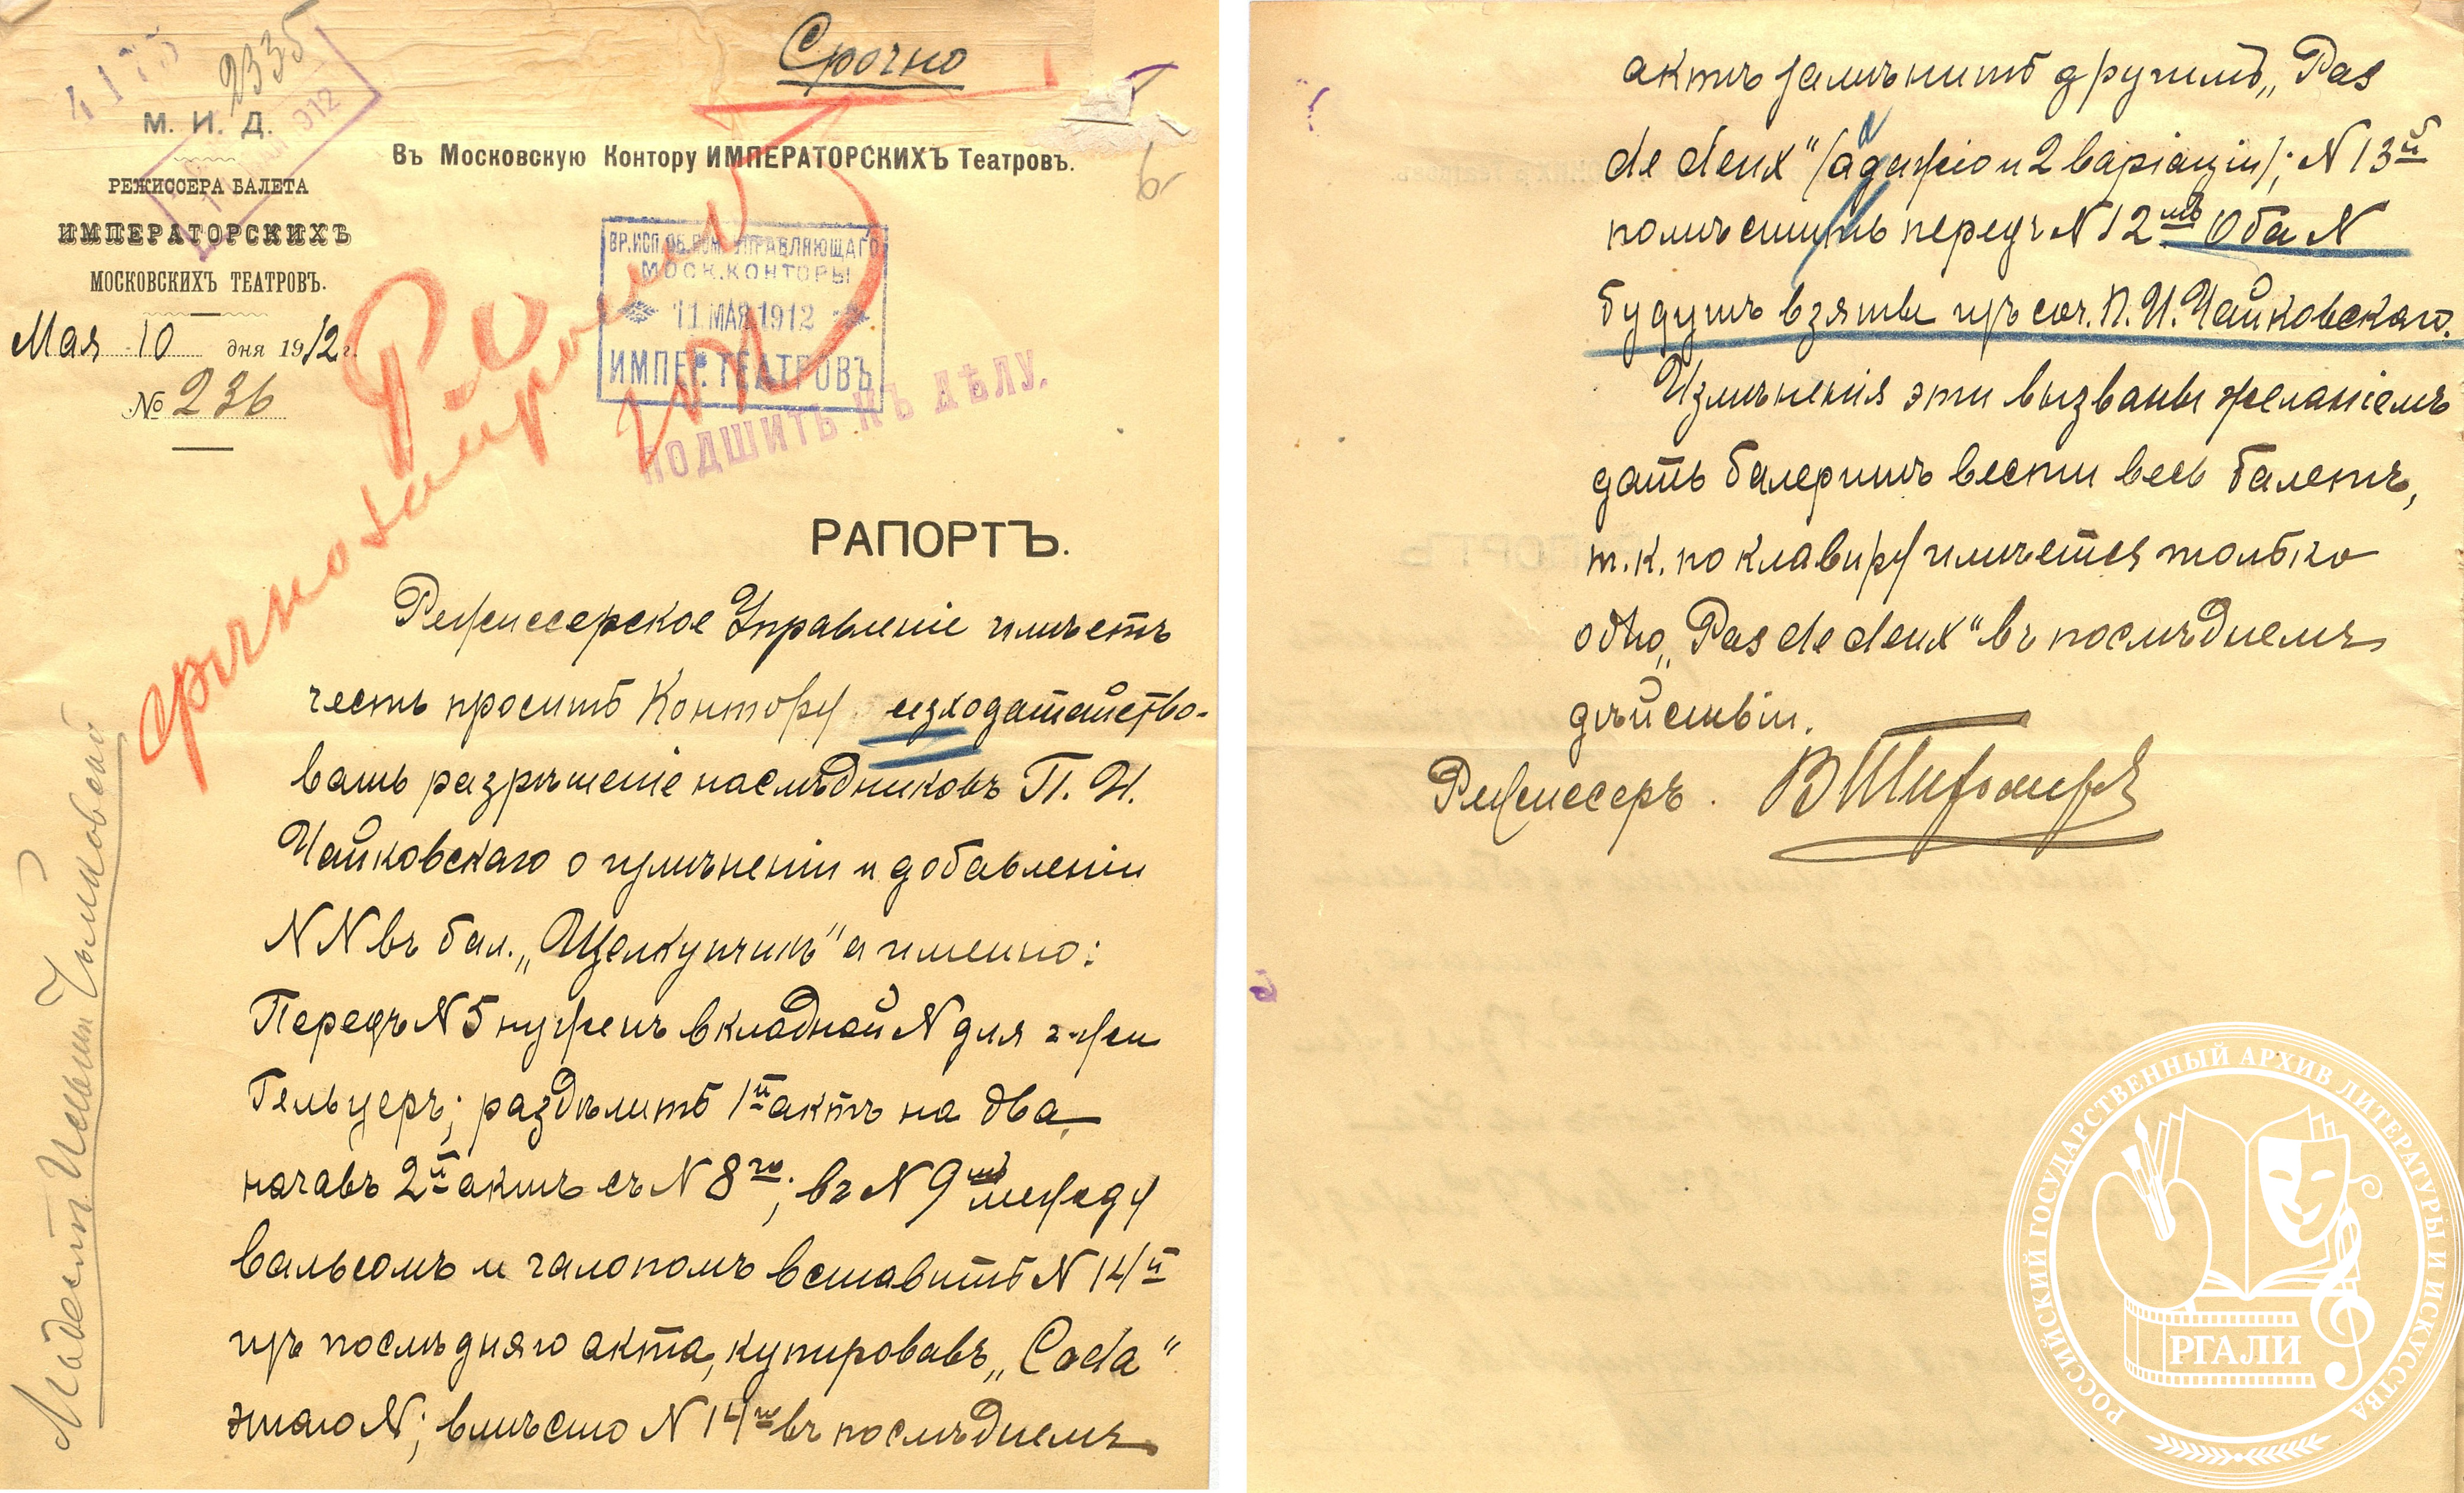 4173
2335
Срочно
М. И. Д.
РЕЖИССЕРА БАЛЕТА
ИМПЕРАТОРСКИХЪ
МОСКОВСКИХЪ ТЕАТРОВЪ.
Мая 10 дня 1912 г.
№ 236
Въ Московскую Контору ИМПЕРАТОРСКИХЪ Театровъ.
6
ВР. ИСП. ОБ. УПРАВЛЯЮЩАГО
МОСК. КОНТОРЫ
11 МАЯ 1912
ИМПЕР. ТЕАТРОВЪ
ПОДШИТЬ КЪ ДѢЛУ.
срочно
РАПОРТЪ.
Режиссерское Управленіе имѣетъ
честь просить Контору исходатайство-
вать разрѣшеніе наслѣдниковъ П. И.
Чайковскаго о измѣненіи и добавленіи
N N въ бал. „Щелкунчикъ" а именно:
Передъ N 5 нуженъ вкладной N для г-жи
Гельцеръ; раздѣлить 1й актъ на два,
начавъ 2й актъ съ N 8го; въ N 9мъ между
вальсомъ и галопомъ вставить N 14й
изъ послѣдняго акта, купировавъ „Coda"
этаго N; вмѣсто N 14го въ послѣднемъ
Модест Ильич Чайковский
актѣ замѣнить другимъ „Pas
de deux" (адажіо и 2 варіаціи); N 13й
помѣстить передъ N 12мъ Оба N
будутъ взяты изъ соч. П. И. Чайковскаго.
Измѣненія эти вызваны желаніемъ
дать балеринѣ вести весь балетъ,
т. к. по клавиру имѣется только
одно „Pas de deux" въ послѣднемъ
дѣйствіи.
Режиссеръ. ВТихомировъ
РОССИЙСКИЙ ГОСУДАРСТВЕННЫЙ АРХИВ ЛИТЕРАТУРЫ И ИСКУССТВА
РГАЛИ